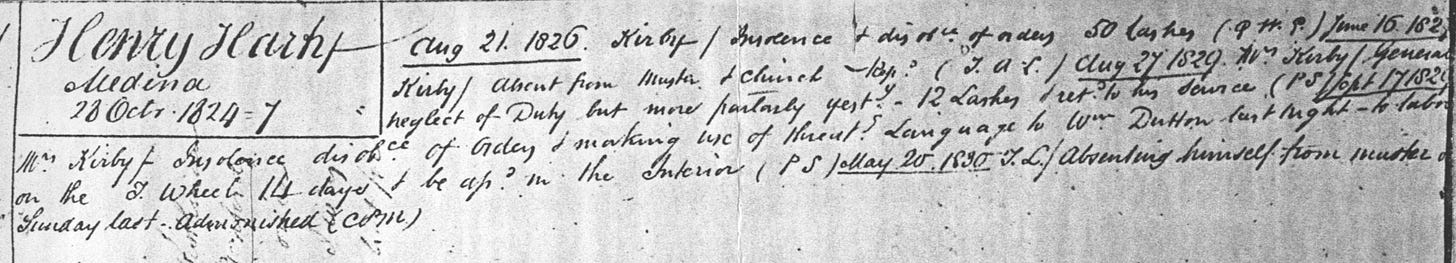 Henry Harh
Medina
28 Octr. 1824 = 7
Aug 21. 1826. Kirby / Insolence & disobce. of orders 50 Lashes (P H P.) June 16 182
Kirby / Absent from Muster & Church - Rep.d ( T. A. L. ) Aug 27 1829. Mrs Kirby / General
neglect of Duty but more partarly yesty. - 12 Lashes & retd. to his service (PS) Sept 17 182
Mrs Kirby / Insolence disobce of orders & making use of threatg Language to Wm Dutton last night - to labor
on the T. Wheel 14 days & be asd. in the Interior (P S) May 20. 1830 T. L. / Absenting himself from muster
Sunday last - Admonished (COM)